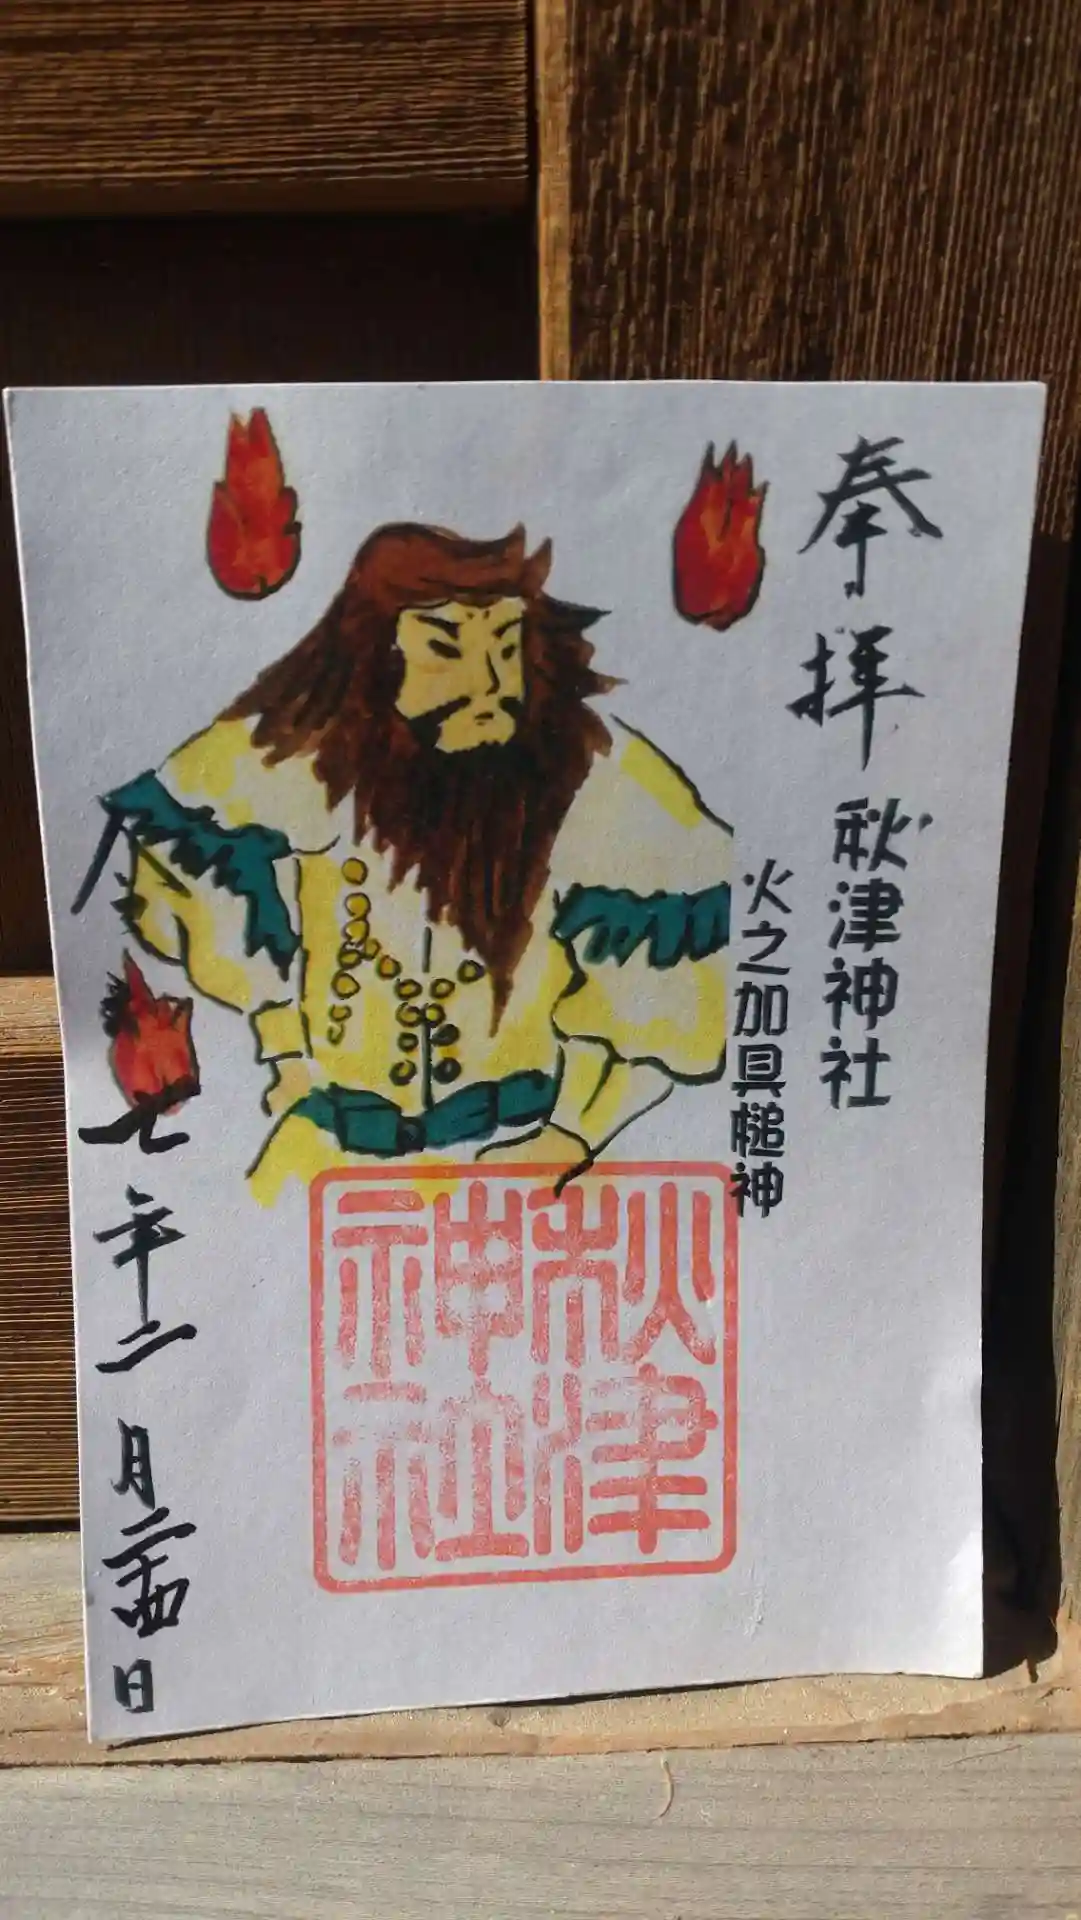 奉拝
秋津神社
火之加具槌神
秋津
神社
令七年二月二十四日